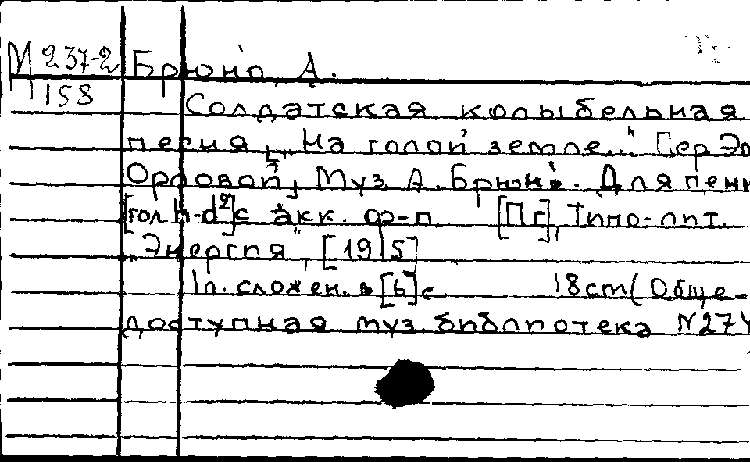 М 237-2 Брюно, А.
158
Солдатская колыбельная
песня, „На голой земле..." [сер Эо
Орловой], Муз А. Брюно. Для пени
[гол h-d²] с акк. ф-п [Пг], Типо-лит.
„Энергия", [1915]
1л. сложен. в [6] с 18cm (Обще-
доступная муз. библиотека N274